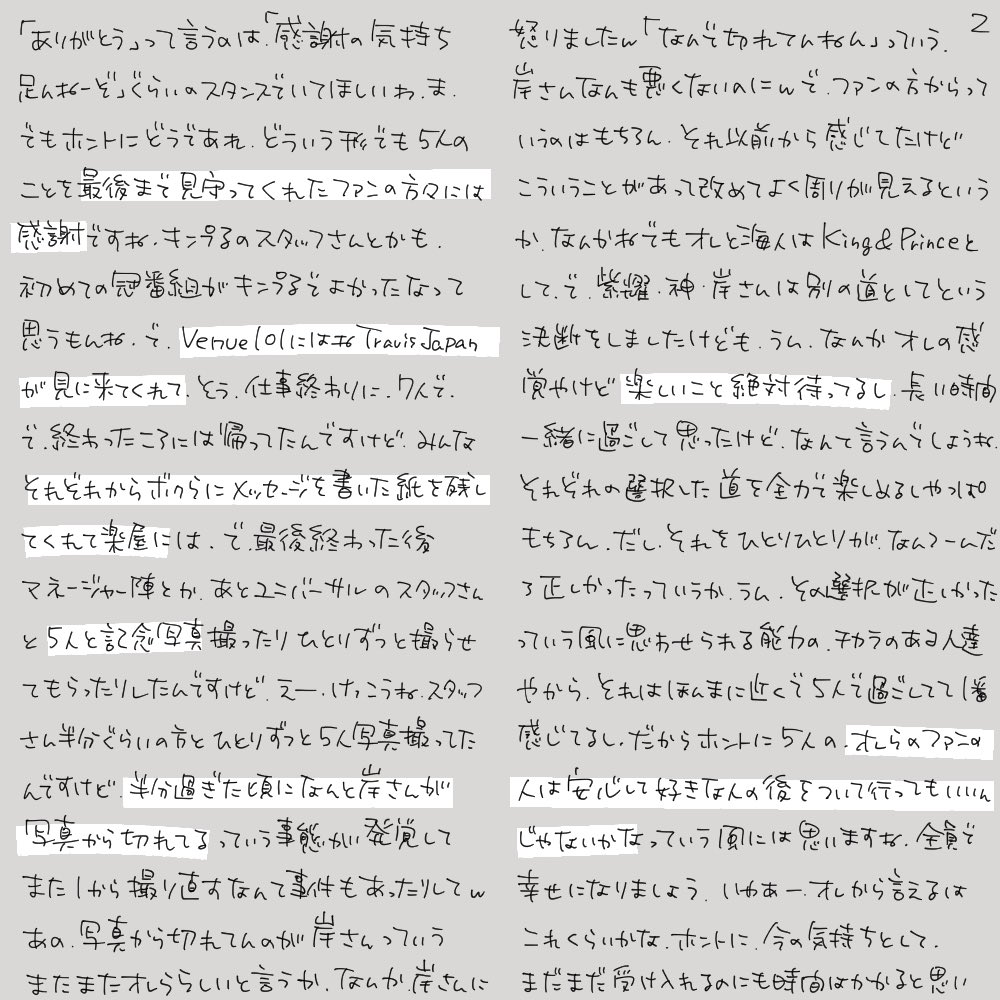 「ありがとう」って言うのは.「感謝の気持ち
足んねーぞ」ぐらいのスタンスでいてほしいわ.ま.
でもホントにどうであれ.どういう形でも5人の
ことを最後まで見守ってくれたファンの方々には
感謝ですね.キンプるのスタッフさんとかも.
初めての冠番組がキンプるでよかったなって
思うもんね.で.Venue101にはね Travis Japan
が見に来てくれて.とう.仕事終わりに.7人で.
で.終わったころには帰ってたんですけど.みんな
それぞれからボクらにメッセージを書いた紙を残し
てくれて楽屋には.で.最後終わった後
マネージャー陣とか.あとユニバーサルのスタッフさん
と5人と記念写真撮ったり ひとりずつと撮らせ
てもらったりしたんですけど.えー.けっこうね.スタッフ
さん半分ぐらいの方とひとりずつと5人写真撮ってた
んですけど.半分過ぎた頃になんと岸さんが
写真から切れてるっていう事態がい発覚して
また1から撮り直すなんて事件もあったりしてw
あの.写真から切れてんのが岸さんっていう
またまたオレらしいと言うか.なんか.岸さんに
2
怒りましたw「なんで切れてんねん」っていう.
岸さんなんも悪くないのにwで.ファンの方からって
いうのはもちろん.それ以前から感じてたけど
こういうことがあって改めてよく周りが見えるという
か.なんかねでもオレと海人はKing&Princeと
して.で.紫耀.神.岸さんは別の道としてという
決断をしましたけども.うん.なんかオレの感
覚やけど楽しいこと絶対待ってるし.長い時間
一緒に過ごして思ったけど.なんて言うんでしょうね.
それぞれの選択した道を全力で楽しめるしやっぱ
もちろん.だし.それをひとりひとりが.なんつーんだ
ろ正しかったっていうか.うん.その選択が正しかった
っていう風に思わせられる能力の.チカラのある人達
やから.それはほんまに近くで5人で過ごしてて1番
感じてるし.だからホントに5人の.オレらのファンの
人は安心して好きな人の後をついて行ってもいいん
じゃないかなっていう風には思いますね.全員で
幸せになりましょう.いやあー.オレから言えるは
これくらいかな.ホントに.今の気持ちとして.
まだまだ受け入れるのにも時間はかかると思い